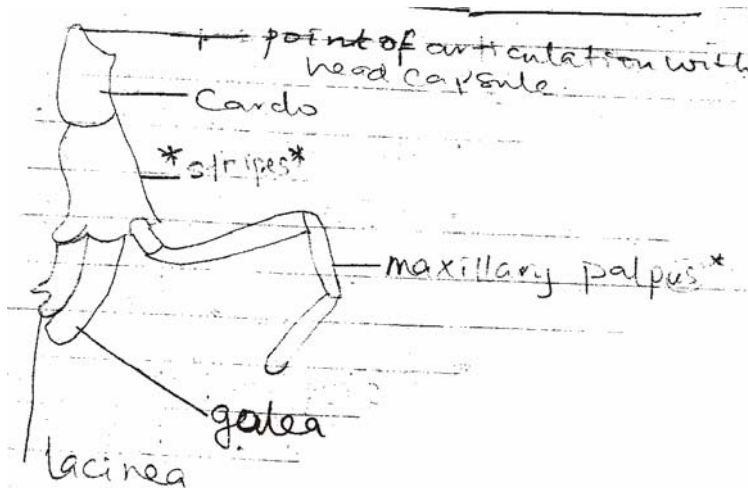 point of articulation with
head capsule
Cardo
*stripes*
maxillary palpus*
galea
lacinea